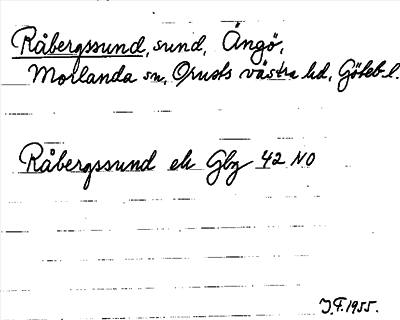 Råbergssund, sund, Ängö,
Morlanda sn, Orusts västra hd, Göteb. l.
Råbergssund ek Gbg 42 NO
J.F. 1955.